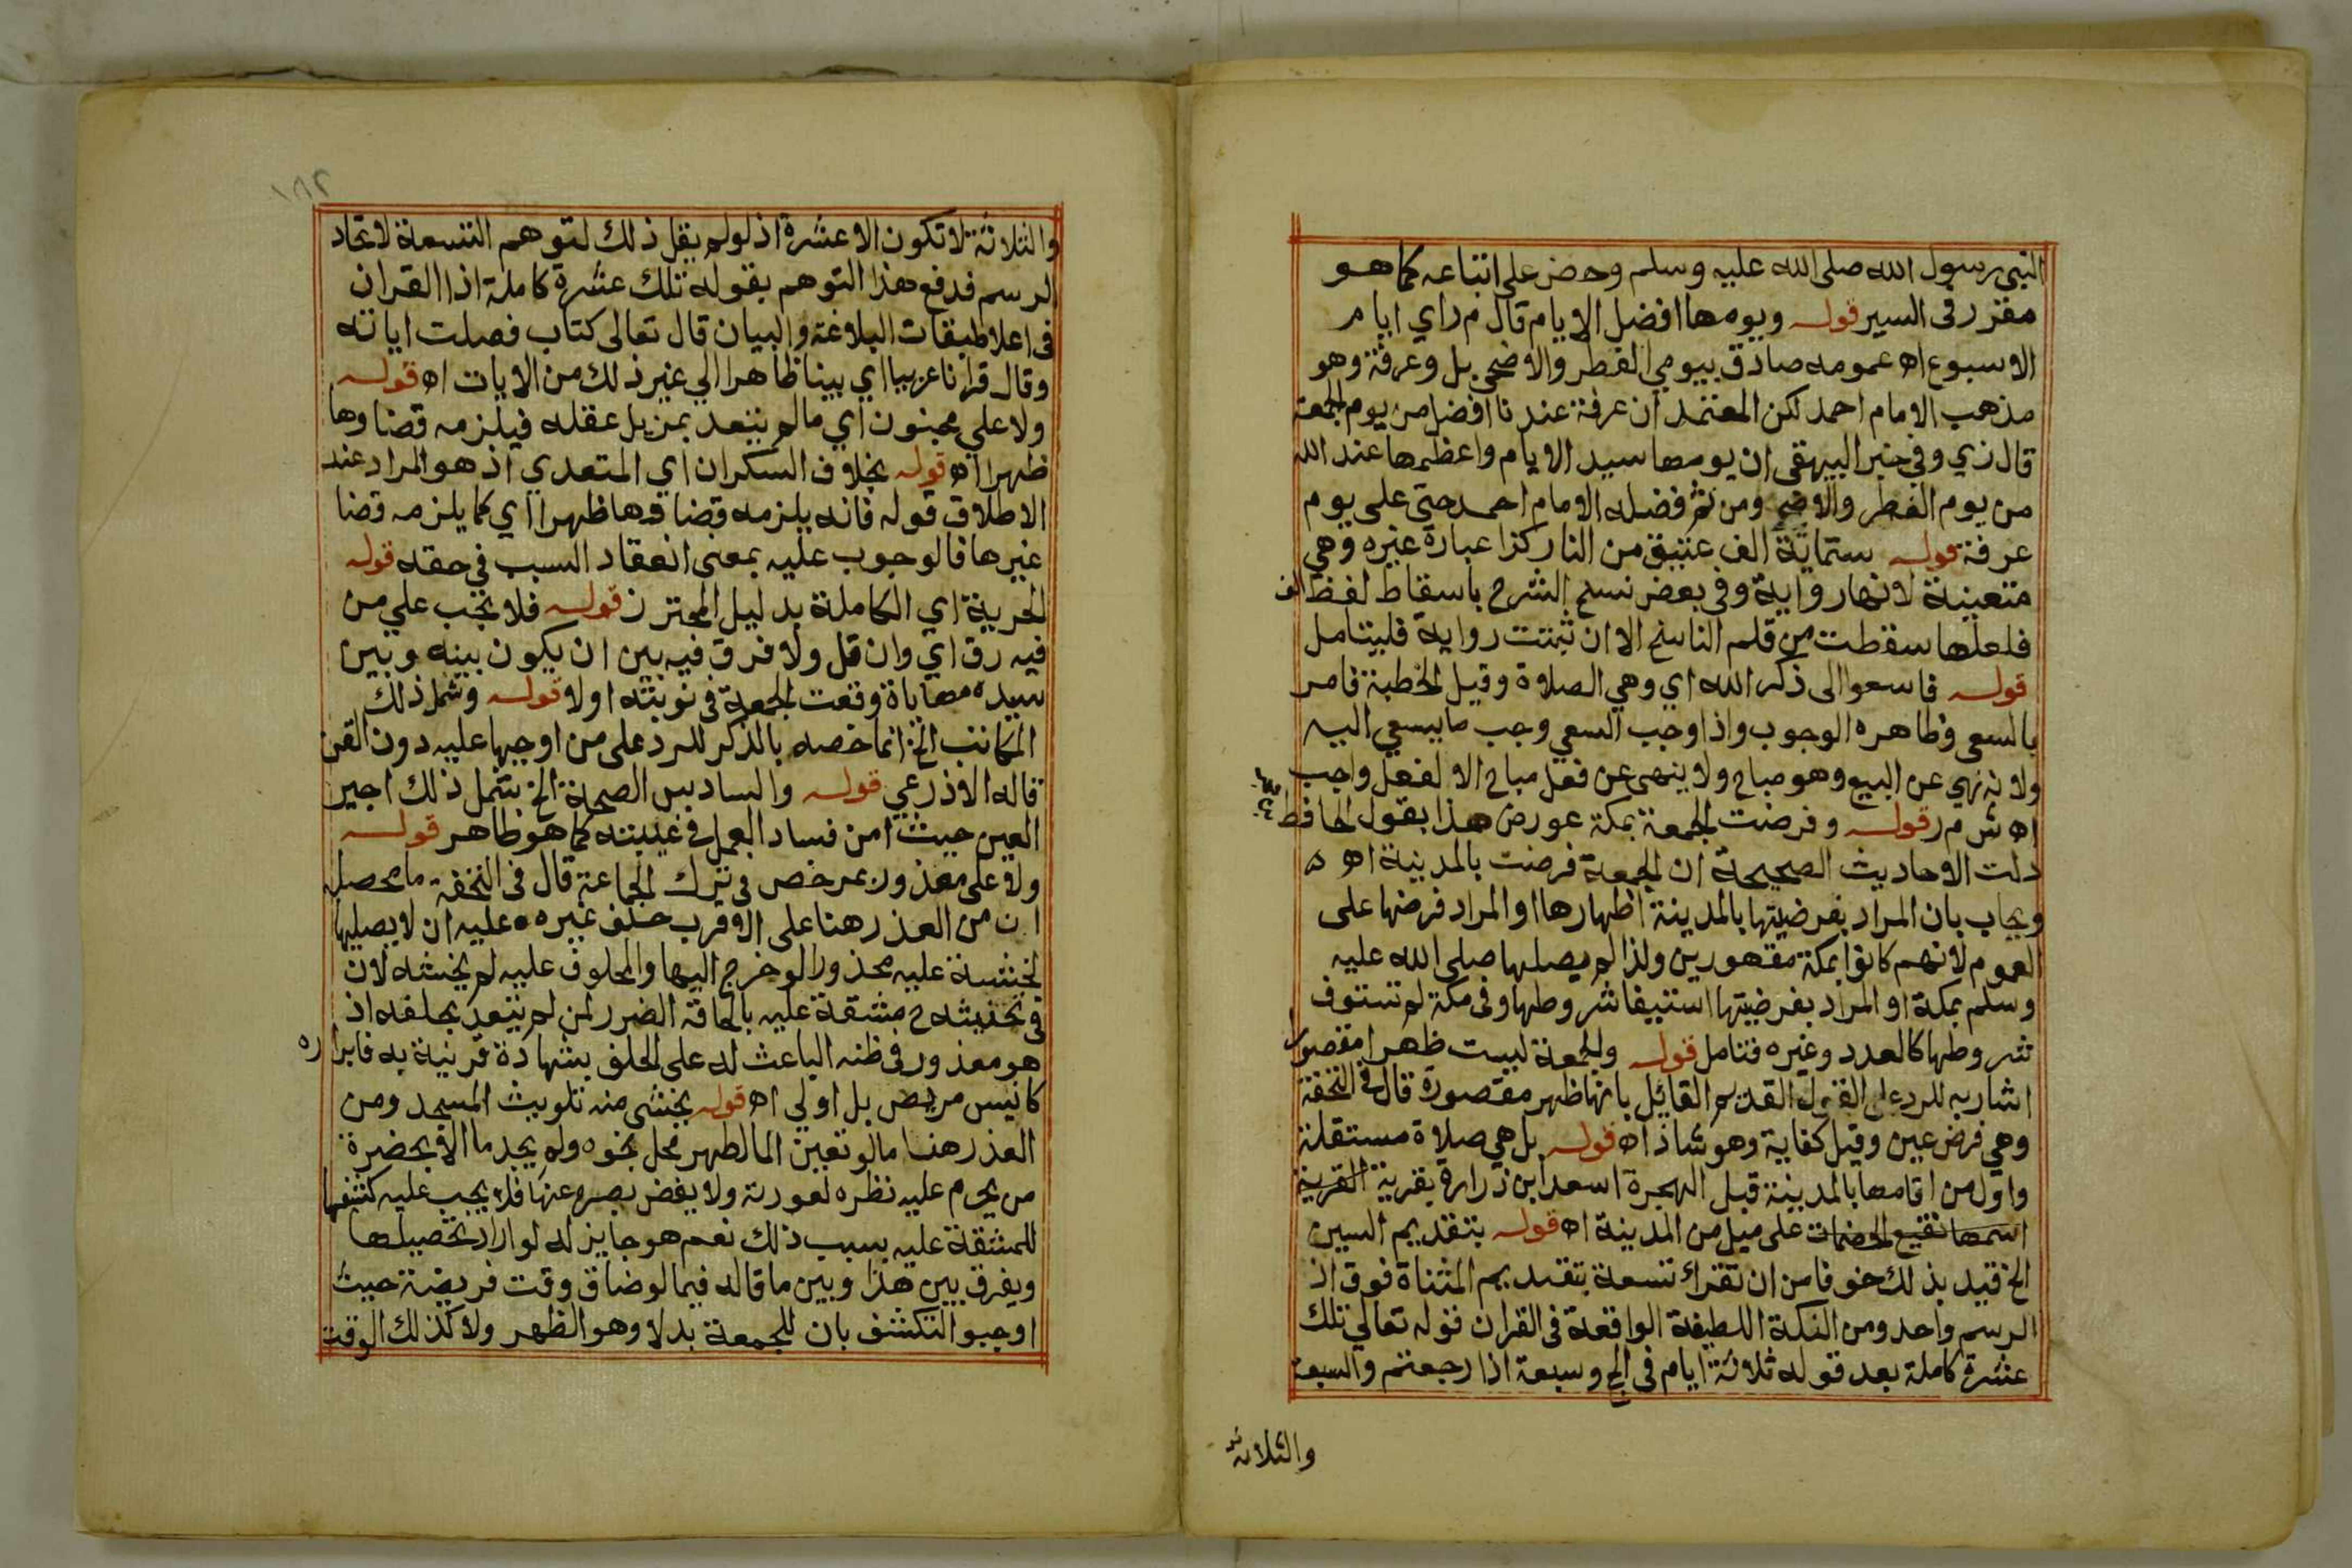 النبي رسول الله صلى الله عليه وسلم وحض على اتباعه كما هو
مقرر في السير قوله ويومها افضل الايام قال م ر اي ايام
الاسبوع اه عمومه صادق بيومي الفطر والاضحى بل وعرفة وهو
مذهب الامام احمد لكن المعتمد ان عرفة عندنا افضل من يوم الجمعة
قال زي وفي خبر البيهقي ان يومها سيد الايام واعظمها عند الله
من يوم الفطر والاضحى ومن ثم فضله الامام احمد حتى على يوم
عرفة قوله ستماية الف عتيق من النار كذا عبارة غيره وهي
متعينة لانها رواية وفي بعض نسخ الشرح باسقاط لفظ الف
فلعلها سقطت من قلم الناسخ الا ان ثبتت رواية فليتامل
قوله فاسعوا الى ذكر الله اي وهي الصلاة وقيل الخطبة فامر
بالسعي وظاهره الوجوب واذا وجب السعي وجب ما يسعي اليه
ولانه نهي عن البيع وهو مباح ولا ينهى عن فعل مباح الا لفعل واجب
اه ش م ر قوله وفرضت الجمعة بمكة عورض هذا بقول الحافظ
دلت الاحاديث الصحيحة ان الجمعة فرضت بالمدينة اه
ويجاب بان المراد بفرضيتها بالمدينة اظهارها او المراد فرضها على
العموم لانهم كانوا بمكة مقهورين ولذا لم يصلها صلى الله عليه
وسلم بمكة او المراد بفرضيتها استيفا شروطها وفي مكة لم تستوف
شروطها كالعدد وغيره فتامل قوله والجمعة ليست ظهرا مقصورا
اشار به للرد على القول القديم القائل بانها ظهر مقصورة قال في التحفة
وهي فرض عين وقيل كفاية وهو شاذ اه قوله بل هي صلاة مستقلة
واول من اقامها بالمدينة قبل الهجرة اسعد ابن زرارة بقرية القرية
اسمها نقيع الخضمات على ميل من المدينة اه قوله بتقديم السين
الخ قيد بذلك خوفا من ان تقراء تسعة بتقديم المثناة فوق اذ
الرسم واحد ومن النكة اللطيفة الواقعة في القران قوله تعالي تلك
عشرة كاملة بعد قوله ثلاثة ايام في الحج وسبعة اذا رجعتم والسبعة
والثلاثة
١٨٢
والثلاثة لا تكون الا عشرة اذ لو لم يقل ذلك لتوهم التسعة لاتحاد
الرسم فدفع هذا التوهم بقوله تلك عشرة كاملة اذا القران
في اعلا طبقات البلاغة والبيان قال تعالى كتاب فصلت اياته
وقال قرانا عربيا اي بينا ظاهرا الي غير ذلك من الايات اه قوله
ولا علي مجنون اي ما لم يتعد بمزيل عقله فيلزمه قضاوها
ظهرا اه قوله بخلاف السكران اي المتعدي اذ هو المراد عند
الاطلاق قوله فانه يلزمه قضاوها ظهرا اي كما يلزمه قضا
غيرها فالوجوب عليه بمعنى انعقاد السبب في حقه قوله
الحرية اي الكاملة بدليل المحترز قوله فلا تجب علي من
فيه رق اي وان قل ولا فرق فيه بين ان يكون بينه وبين
سيده مهاياة وقعت الجمعة في نوبته اولا قوله وشمل ذلك
المكاتب الخ انما خصه بالذكر للرد على من اوجبها عليه دون القن
قاله الاذرعي قوله والسادس الصحة الخ يشمل ذلك اجير
العين حيث امن فساد العمل في غيبته كما هو ظاهر قوله
ولا على معذور بمرخص في ترك الجماعة قال في التحفة ما محصله
ان من العذر هنا على الاقرب حلف غيره عليه ان لا يصليها
لخشية عليه محذورا لو خرج اليها والمحلوف عليه لم يخشه لان
في تحنيثه ح مشقة عليه بالحاقه الضرر لمن لم يتعد بحلفه اذ
هو معذور في ظنه الباعث له على الحلف بشهادة قرينة به فابراره
كانيس مريض بل اولي اه قوله يخشى منه تلويث المسجد ومن
العذر هنا ما لو تعين الما لطهر محل نجوه ولم يجد ما الا بحضرة
من يحرم عليه نظره لعورته ولا يغض بصره عنها فلا يجب عليه كشفها
للمشقة عليه بسبب ذلك نعم هو جايز له لو اراد تحصيلها
ويفرق بين هذا وبين ما قاله فيما لو ضاق وقت فريضة حيث
اوجبوا التكشف بان للجمعة بدلا وهو الظهر ولا كذلك الوقت